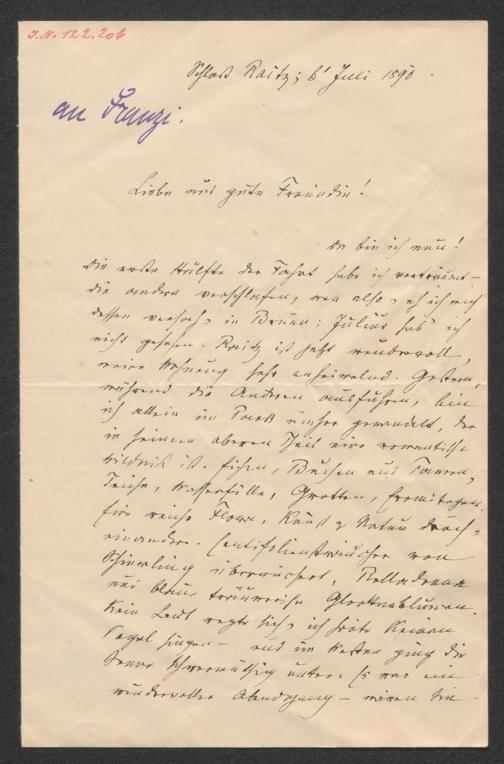 J.N. 122.206
Schloß Raitz, 6t Juli 1890.
an Franzi.
Liebe und gute Freundin!
Da bin ich nun!
Die erste Hälfte der Fahrt habe ich verträumt –
die andere verschlafen, war also, eh ich mich
dessen versah, in Brünn; Julius hab' ich
nicht gesehen. Raitz ist jetzt wundervoll,
meine Wohnung sehr anheimelnd. Gestern,
während die Anderen ausfuhren, bin
ich allein im Park umher gewandelt, der
in seinem oberen Theil eine romantische
Wildniß ist. Eichen, Buchen und Tannen,
Teiche, Wasserfälle, Grotten, Eremitagen.
Eine reiche Flora, Kunst & Natur durch-
einander. Centifoliensträucher von
Schierling überwuchert, Belladonna
und blaue Glockenblumen.
Kein Laut regte sich, ich hörte keinen
Vogel singen – und im Westen ging die
Sonne schwermüthig unter. Es war ein
wundervoller Abendgang – wären Sie